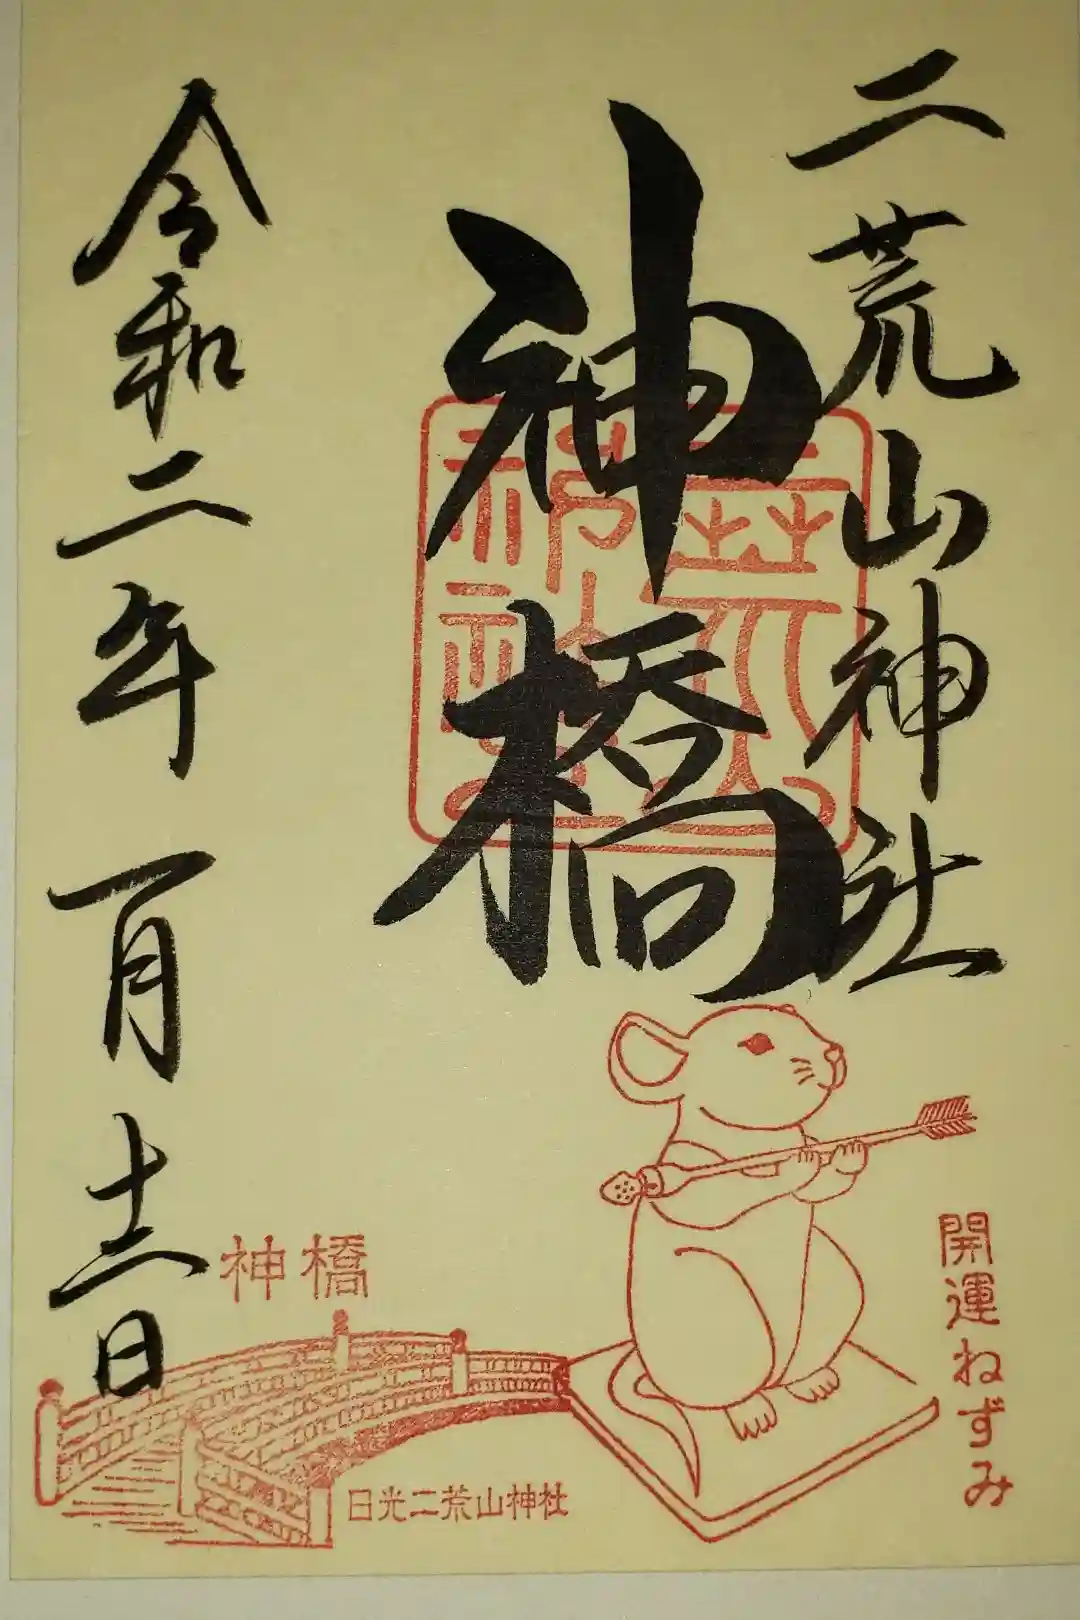 二荒山神社
神橋
令和二年一月十二日
神橋
日光二荒山神社
開運ねずみ